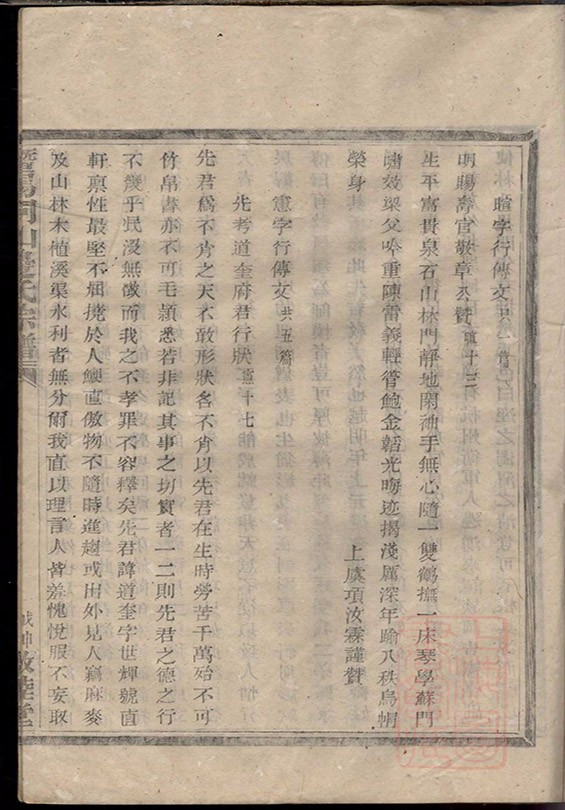 暄字行傳文
明賜壽官敬章公贊
生平富貴泉石山林門靜地閑袖手無心隨一雙鶴撫一床琴學蘇門
嘯效梁父吟重陳雷義輕管鮑金韜光晦迹揭淺厲深年踰八秩烏帽
榮身 上虞項汝霖謹贊
憲字行傳文共五篇
先考道奎府君行狀憲十七
先君爲不肖之天不敢形狀名不肖以先君在生時勞苦千萬殆不可
竹帛書亦不可毛穎悉若非記其事之切實者一二則先君之德之行
不幾乎泯沒無傳而我之不孝罪不容釋矣先君諱道奎字世輝號直
軒禀性最堅不屈撓於人鯁直傲物不隨時進趨或出外見人竊麻麥
及山林木植溪渠水利者無分爾我直以理言人皆羞愧悅服不妄取
氏宗譜
敦睦堂